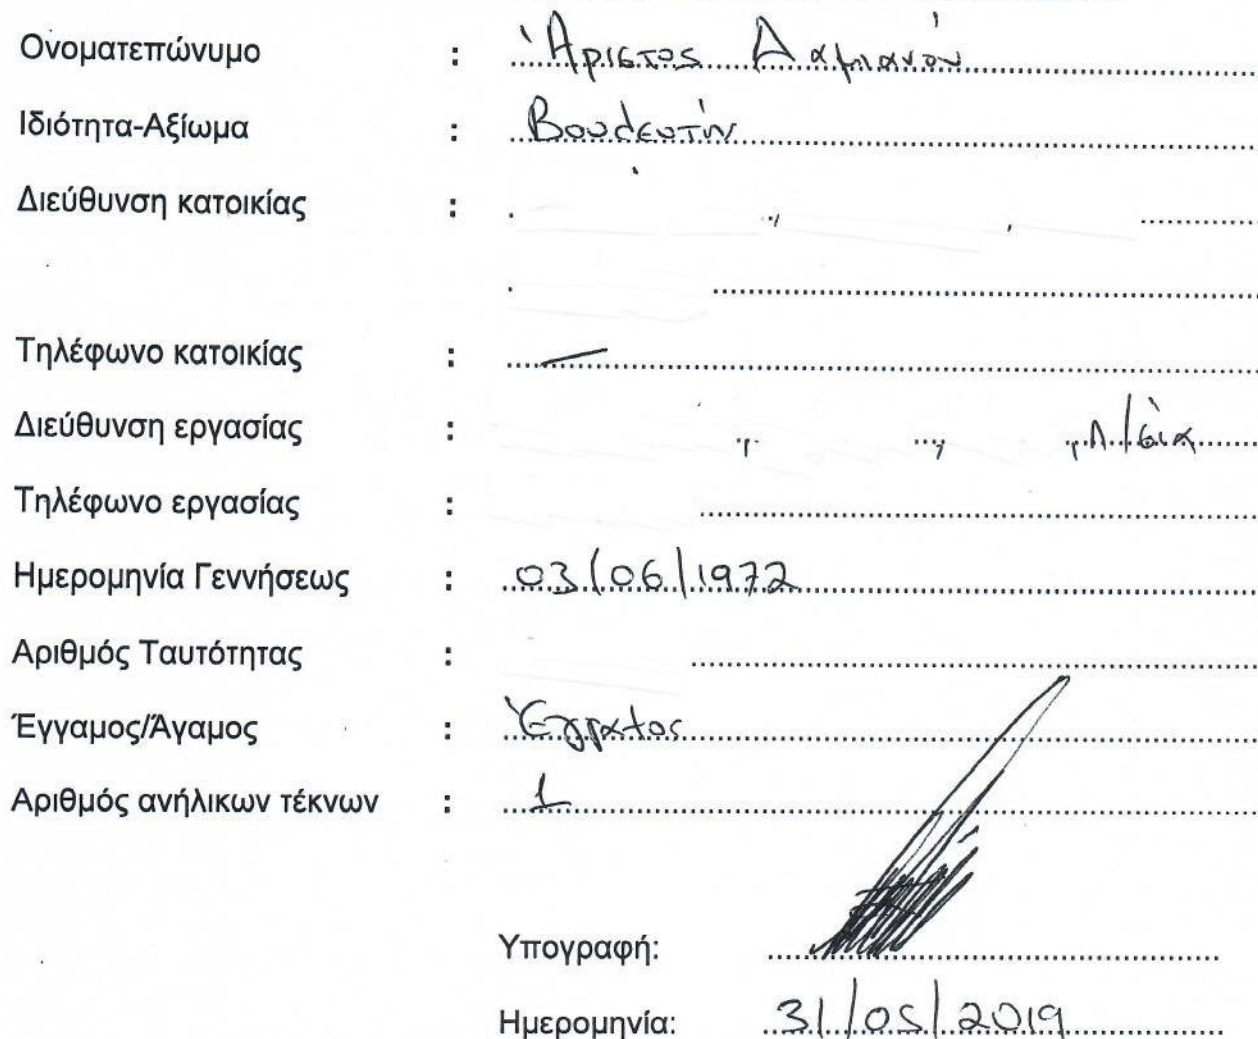 Ονοματεπώνυμο : Άριστος Δαμιανού
Ιδιότητα-Αξίωμα : Βουλευτής
Διεύθυνση κατοικίας :
Τηλέφωνο κατοικίας : —
Διεύθυνση εργασίας : , Λ/σία
Τηλέφωνο εργασίας :
Ημερομηνία Γεννήσεως : 03/06/1972
Αριθμός Ταυτότητας :
Έγγαμος/Άγαμος : Έγγαμος
Αριθμός ανήλικων τέκνων : 1
Υπογραφή:
Ημερομηνία: 31/05/2019